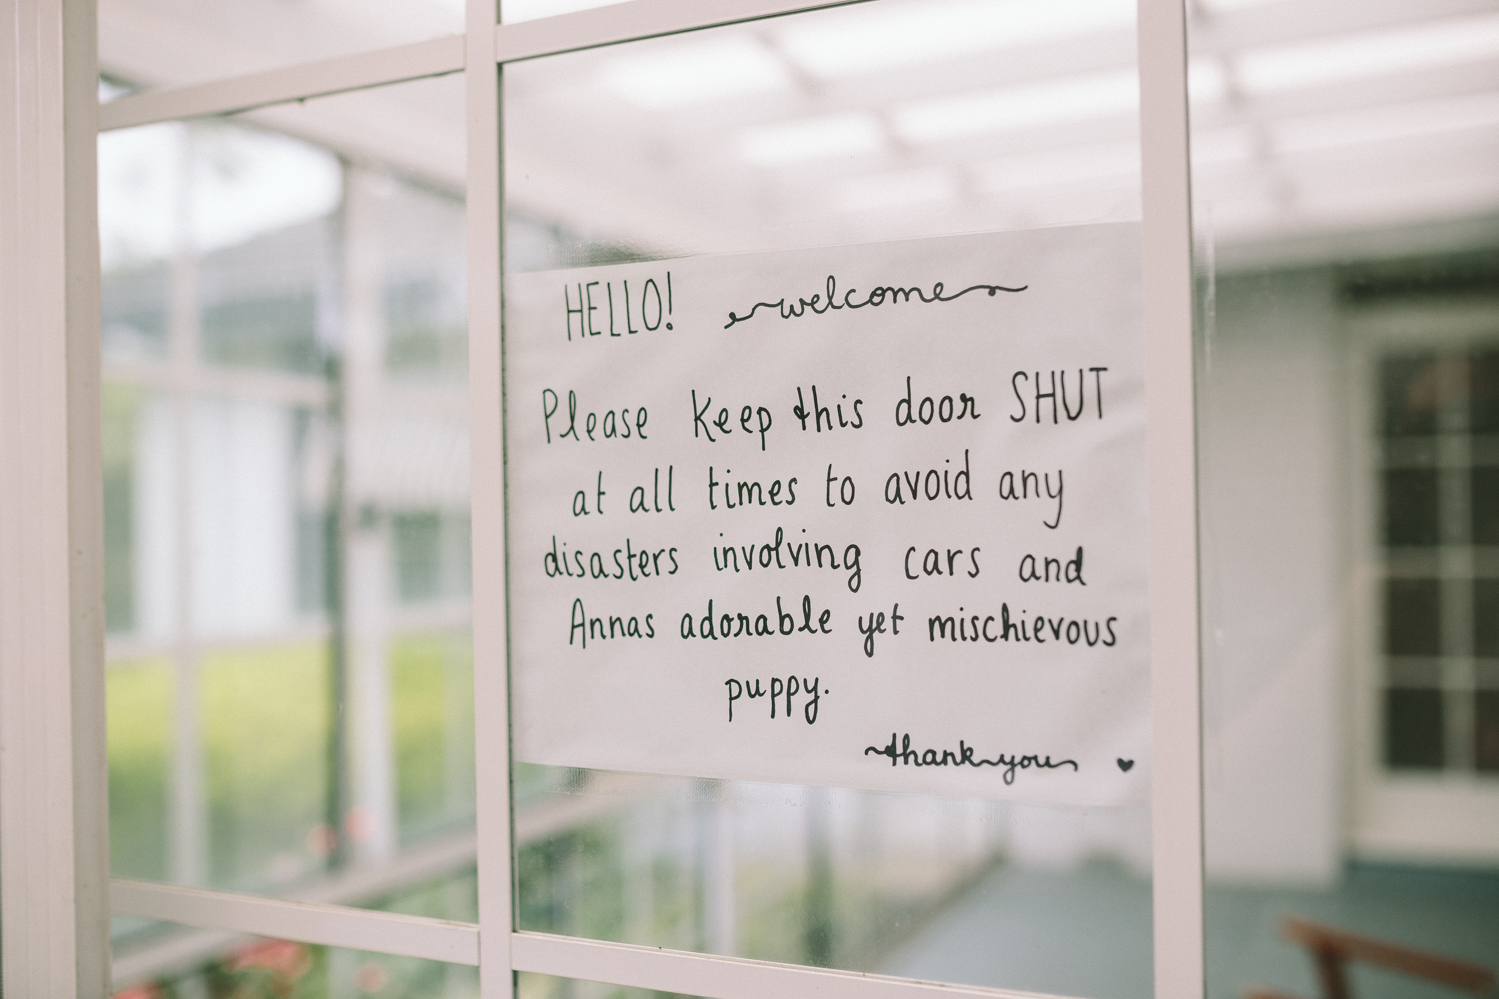 HELLO! welcome
Please keep this door SHUT
at all times to avoid any
disasters involving cars and
Annas adorable yet mischievous
puppy.
thank you ♥